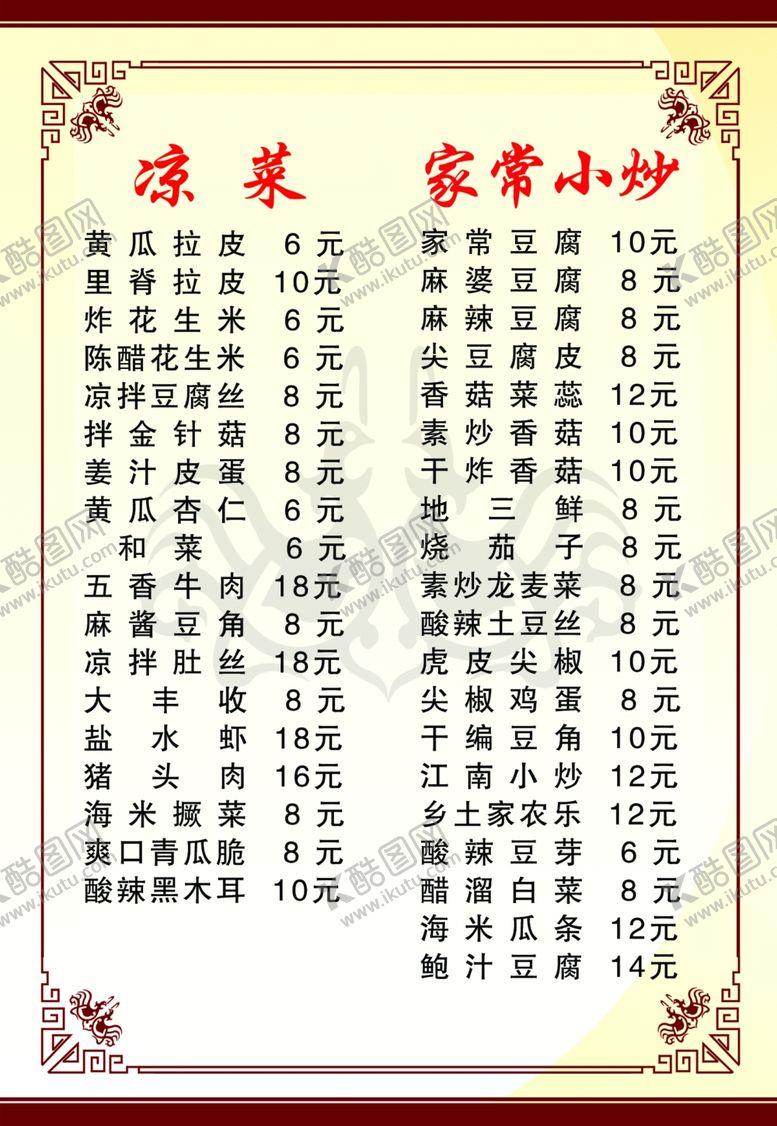 凉菜
黄瓜拉皮 6元
里脊拉皮 10元
炸花生米 6元
陈醋花生米 6元
凉拌豆腐丝 8元
拌金针菇 8元
姜汁皮蛋 8元
黄瓜杏仁 6元
和菜 6元
五香牛肉 18元
麻酱豆角 8元
凉拌肚丝 18元
大丰收 8元
盐水虾 18元
猪头肉 16元
海米撅菜 8元
爽口青瓜脆 8元
酸辣黑木耳 10元
家常小炒
家常豆腐 10元
麻婆豆腐 8元
麻辣豆腐 8元
尖豆腐皮 8元
香菇菜蕊 12元
素炒香菇 10元
干炸香菇 10元
地三鲜 8元
烧茄子 8元
素炒龙麦菜 8元
酸辣土豆丝 8元
虎皮尖椒 10元
尖椒鸡蛋 8元
干编豆角 10元
江南小炒 12元
乡土家农乐 12元
酸辣豆芽 6元
醋溜白菜 8元
海米瓜条 12元
鲍汁豆腐 14元
酷图网
www.ikutu.com